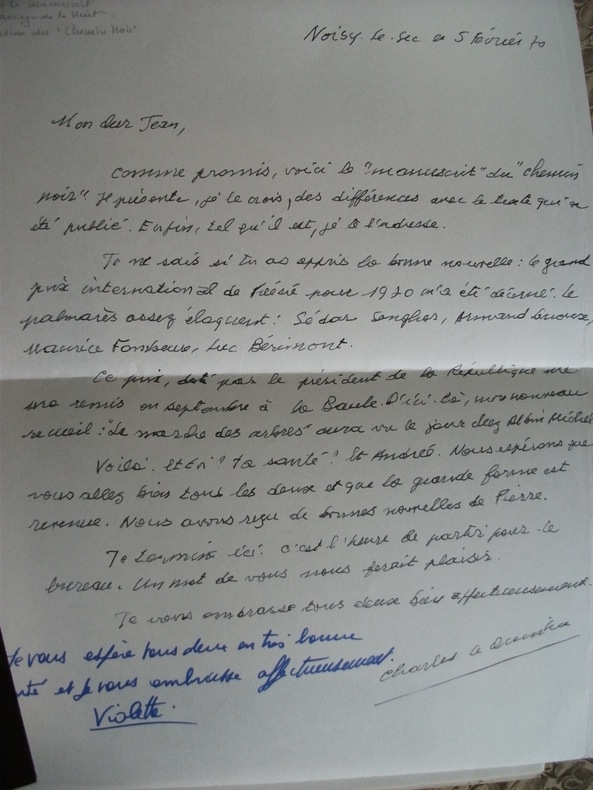 le manuscrit
Passage de la Nuit
"Chemin Noir"
Noisy-le-sec le 5 février 70
Mon cher Jean,
Comme promis, voici le "manuscrit" du "chemin
noir" Il présente, je le crois, des différences avec le texte qui a
été publié. Enfin, tel qu'il est, je te l'adresse.
Je ne sais si tu as appris la bonne nouvelle : le grand
prix international de Poésie pour 1970 m'a été décerné. Le
palmarès assez éloquent : Sédar Senghor, Armand Lanoux,
Maurice Fombeure, Luc Bérimont.
Ce prix, doté par le président de la République me
sera remis en septembre à la Baule. D'ici là, mon nouveau
recueil : "La marche des arbres" aura vu le jour chez Albin Michel
Voilà. Et toi ? Ta santé ? Et Andrée. Nous espérons que
vous allez bien tous les deux et que la grande forme est
revenue. Nous avons reçu de bonnes nouvelles de Pierre.
Je termine ici. C'est l'heure de partir pour le
bureau. Un mot de vous nous ferait plaisir.
Je vous embrasse tous deux bien affectueusement.
Charles
Je vous espère tous deux en très bonne
et je vous embrasse affectueusement.
Violette.